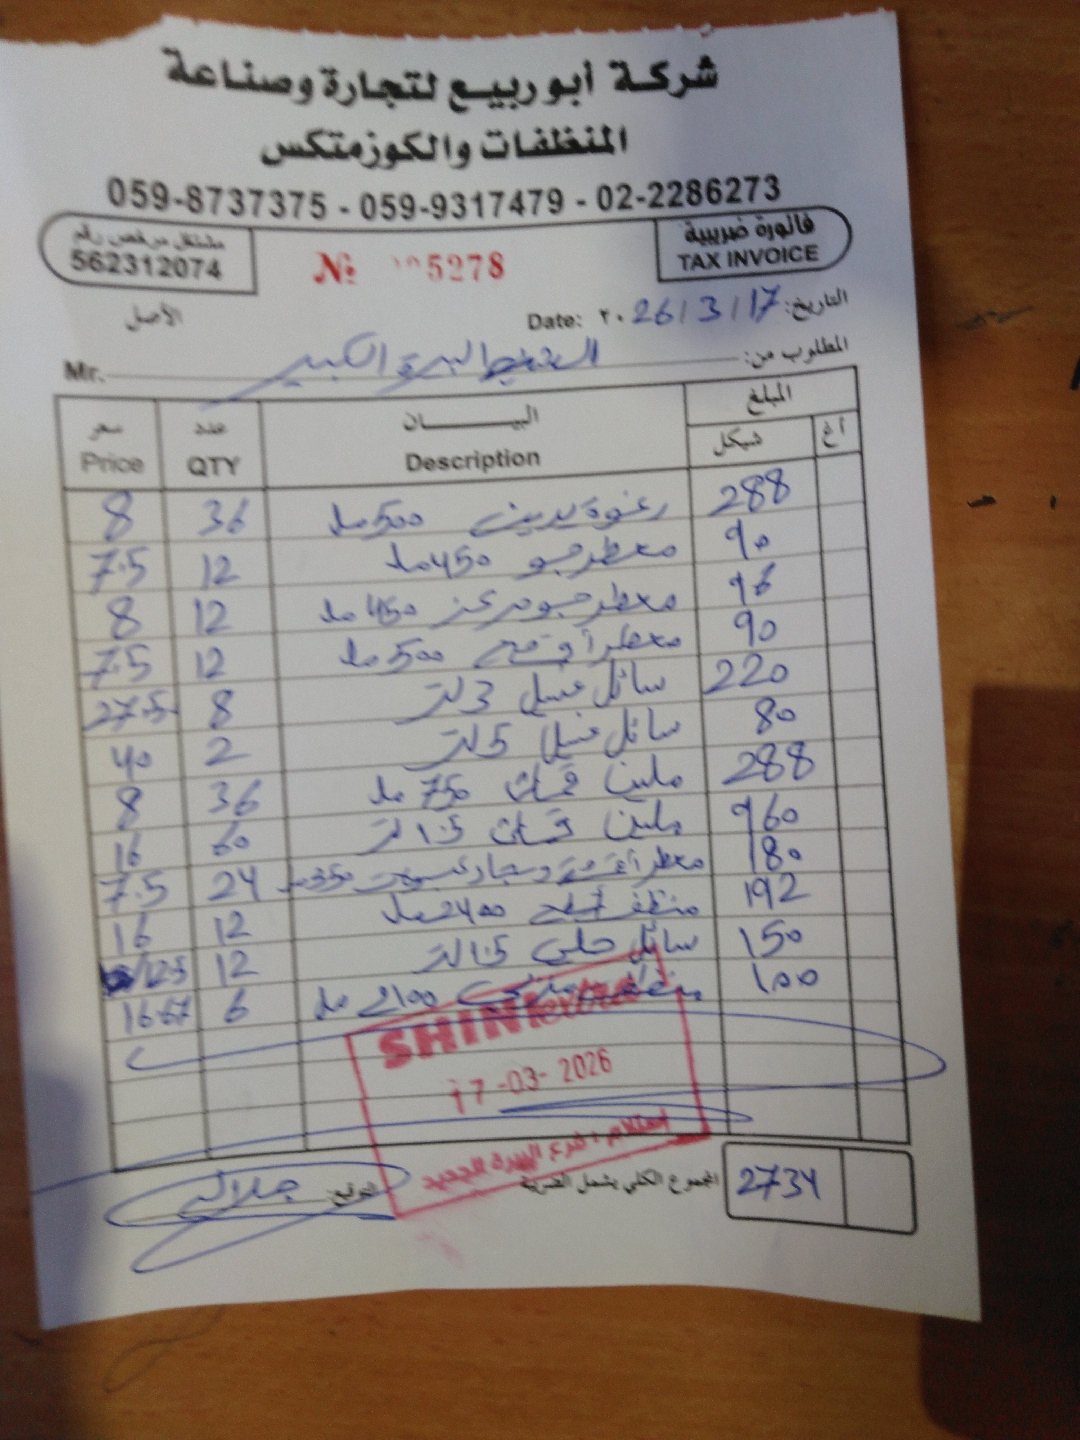 شركة أبو ربيع لتجارة وصناعة
المنظفات والكوزمتكس
059-8737375 - 059-9317479 - 02-2286273
فاتورة ضريبية
TAX INVOICE
№ 5278
مشتغل مرخص رقم
562312074
الأصل
التاريخ: 17/3/2026 Date:
المطلوب من: البيرة الكبير Mr.
المبلغ البيــــــان عدد سعر
أغ شيكل Description QTY Price
288 500 مل 36 8
90 معطر جو 450 مل 12 7.5
96 معطر جو مركز 450 مل 12 8
90 معطر 500 مل 12 7.5
220 سائل غسيل 3 لتر 8 27.5
80 سائل غسيل 5 لتر 2 40
288 ملين 750 مل 36 8
960 ملين 1.5 لتر 60 16
180 معطر 350 24 7.5
192 منظف 2400 مل 12 16
150 سائل جلي 1.5 لتر 12 12.5
100 2100 مل 6 16.67
SHINE extra
17-03-2026
استلام / فرع البيرة الجديد
2734 المجموع الكلي يشمل الضريبة التوقيع: